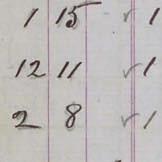 1 15 ✓ 1
12 11 ✓ 1
2 8 ✓ 1